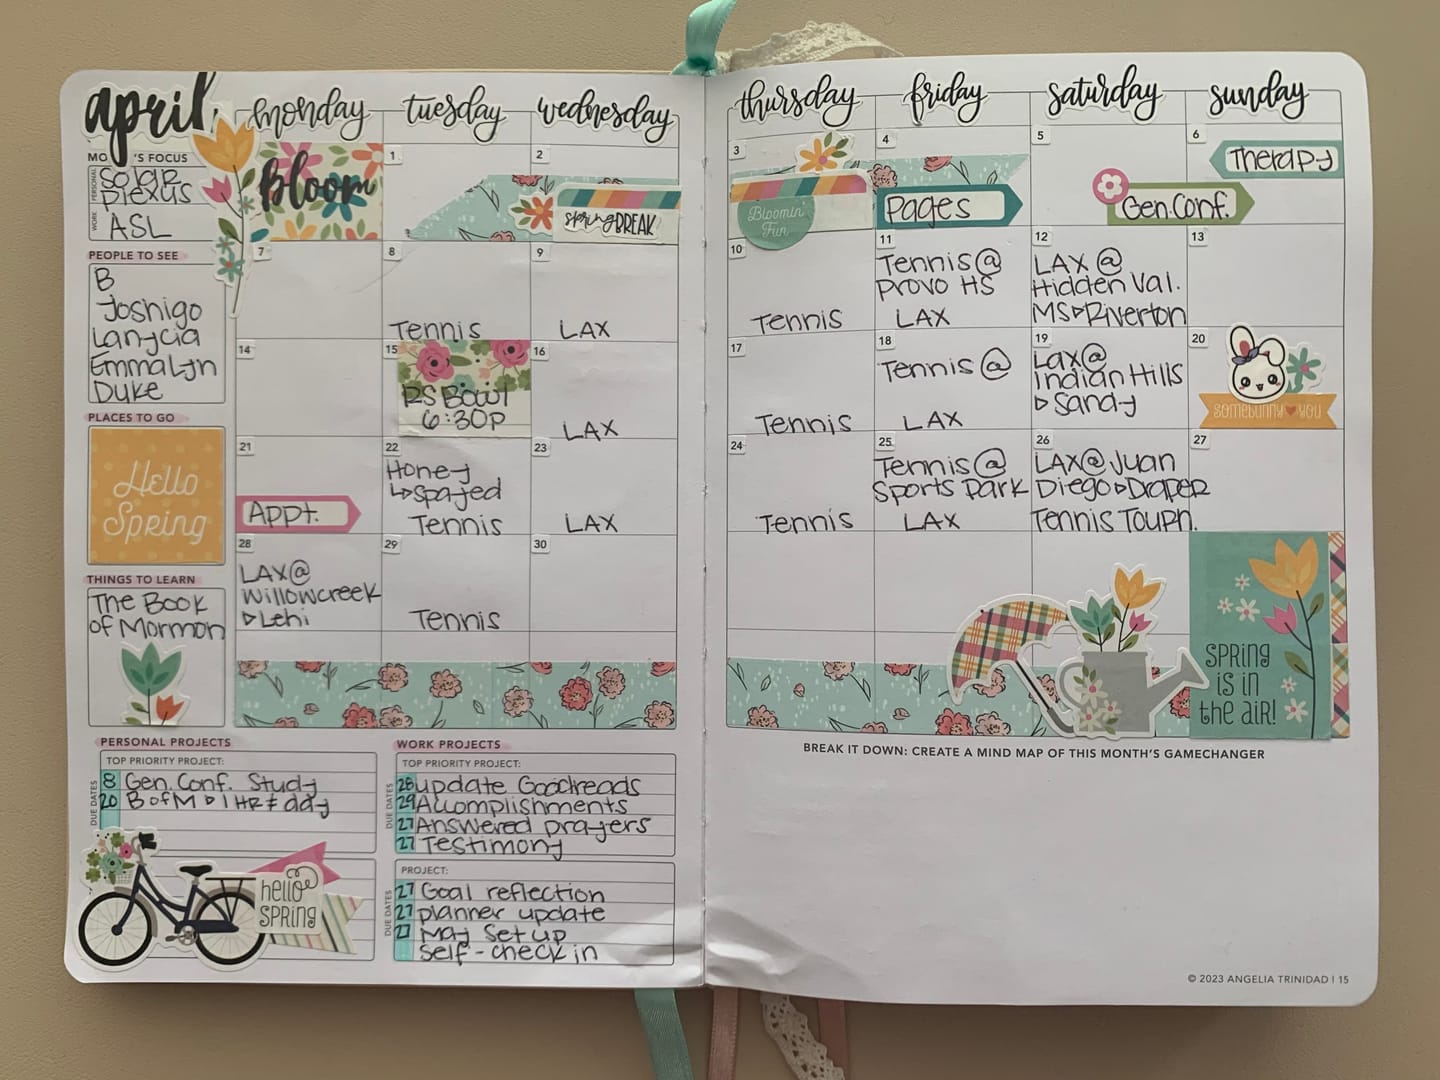 april
monday
tuesday
wednesday
thursday
friday
saturday
sunday
'S FOCUS
PERSONAL
Solar
Plexus
WORK
ASL
PEOPLE TO SEE
B
Yoshigo
Lanycia
Emmalyn
Duke
PLACES TO GO
Hello
Spring
THINGS TO LEARN
The Book
of Mormon
Bloom
1
2
spring BREAK
3
Bloomin'
Fun
4
Pages
5
Gen. Conf.
6
Therapy
7
8
Tennis
9
LAX
10
Tennis
11
Tennis @
Provo HS
LAX
12
LAX @
Hidden Val.
MS Riverton
13
14
15
RS Bowl
6:30P
16
LAX
17
Tennis
18
Tennis @
LAX
19
Lax @
Indian Hills
Sandy
20
SOMEBUNNY ♥ YOU
21
Appt.
22
Honey
↳ spayed
Tennis
23
LAX
24
Tennis
25
Tennis @
Sports Park
LAX
26
LAX @ Juan
Diego Draper
Tennis Tourn.
27
28
LAX @
Willowcreek
Lehi
29
Tennis
30
SPRING
IS IN
the AIR!
PERSONAL PROJECTS
TOP PRIORITY PROJECT:
DUE DATES
8 Gen. Conf. Study
20 B of M 1 HR € day
hello
SPRING
WORK PROJECTS
TOP PRIORITY PROJECT:
DUE DATES
28 update Goodreads
29 Accomplishments
27 Answered prayers
27 Testimony
PROJECT:
DUE DATES
27 Goal reflection
27 planner update
27 May Set up
Self-check in
BREAK IT DOWN: CREATE A MIND MAP OF THIS MONTH'S GAMECHANGER
© 2023 ANGELIA TRINIDAD | 15